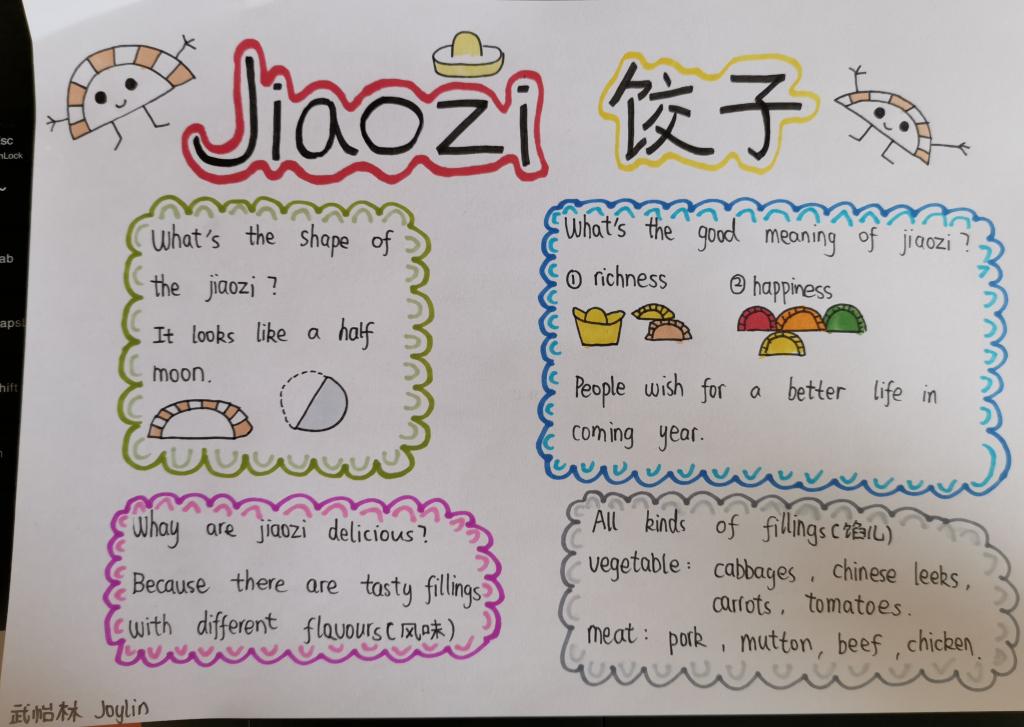 Jiaozi 饺子
What's the shape of
the jiaozi ?
It looks like a half
moon.
What's the good meaning of jiaozi ?
① richness ② happiness
People wish for a better life in
coming year.
Whay are jiaozi delicious ?
Because there are tasty fillings
with different flavours(风味)
All kinds of fillings(馅儿)
vegetable : cabbages , chinese leeks ,
carrots , tomatoes .
meat : pork , mutton , beef , chicken .
武怡林 Joylin
sc
Lock
ab
aps
hift